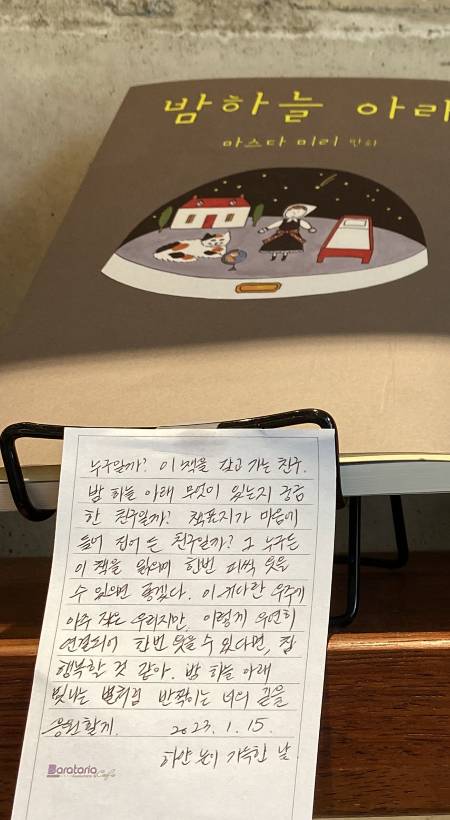 밤하늘 아래
마스다 미리 만화
누구일까? 이 책을 갖고 가는 친구.
밤 하늘 아래 무엇이 있는지 궁금
한 친구일까? 책표지가 마음에
들어 집어 든 친구일까? 그 누구든
이 책을 읽으며 한번 피씩 웃을
수 있으면 좋겠다. 이 커다란 우주에
아주 작은 우리지만, 이렇게 우연히
연결되어 한번 웃을 수 있다면, 참
행복할 것 같아. 밤 하늘 아래
빛나는 별처럼 반짝이는 너의 길을
응원할게. 2023. 1. 15.
하얀 눈이 가득한 날.
Barataria
Cafe